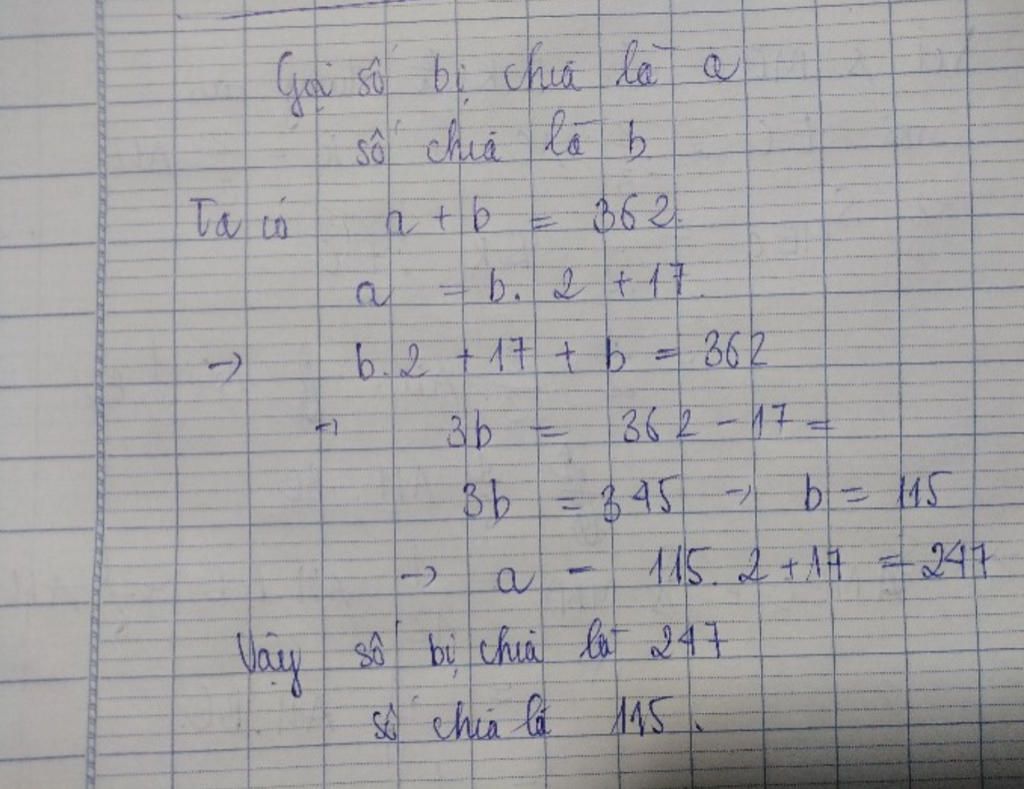 Gọi số bị chia là a
số chia là b
Ta có a + b = 362
a = b. 2 + 17
→ b.2 + 17 + b = 362
→ 3b = 362 - 17 =
3b = 345 → b = 115
→ a = 115. 2 + 17 = 247
Vậy số bị chia là 247
số chia là 115.